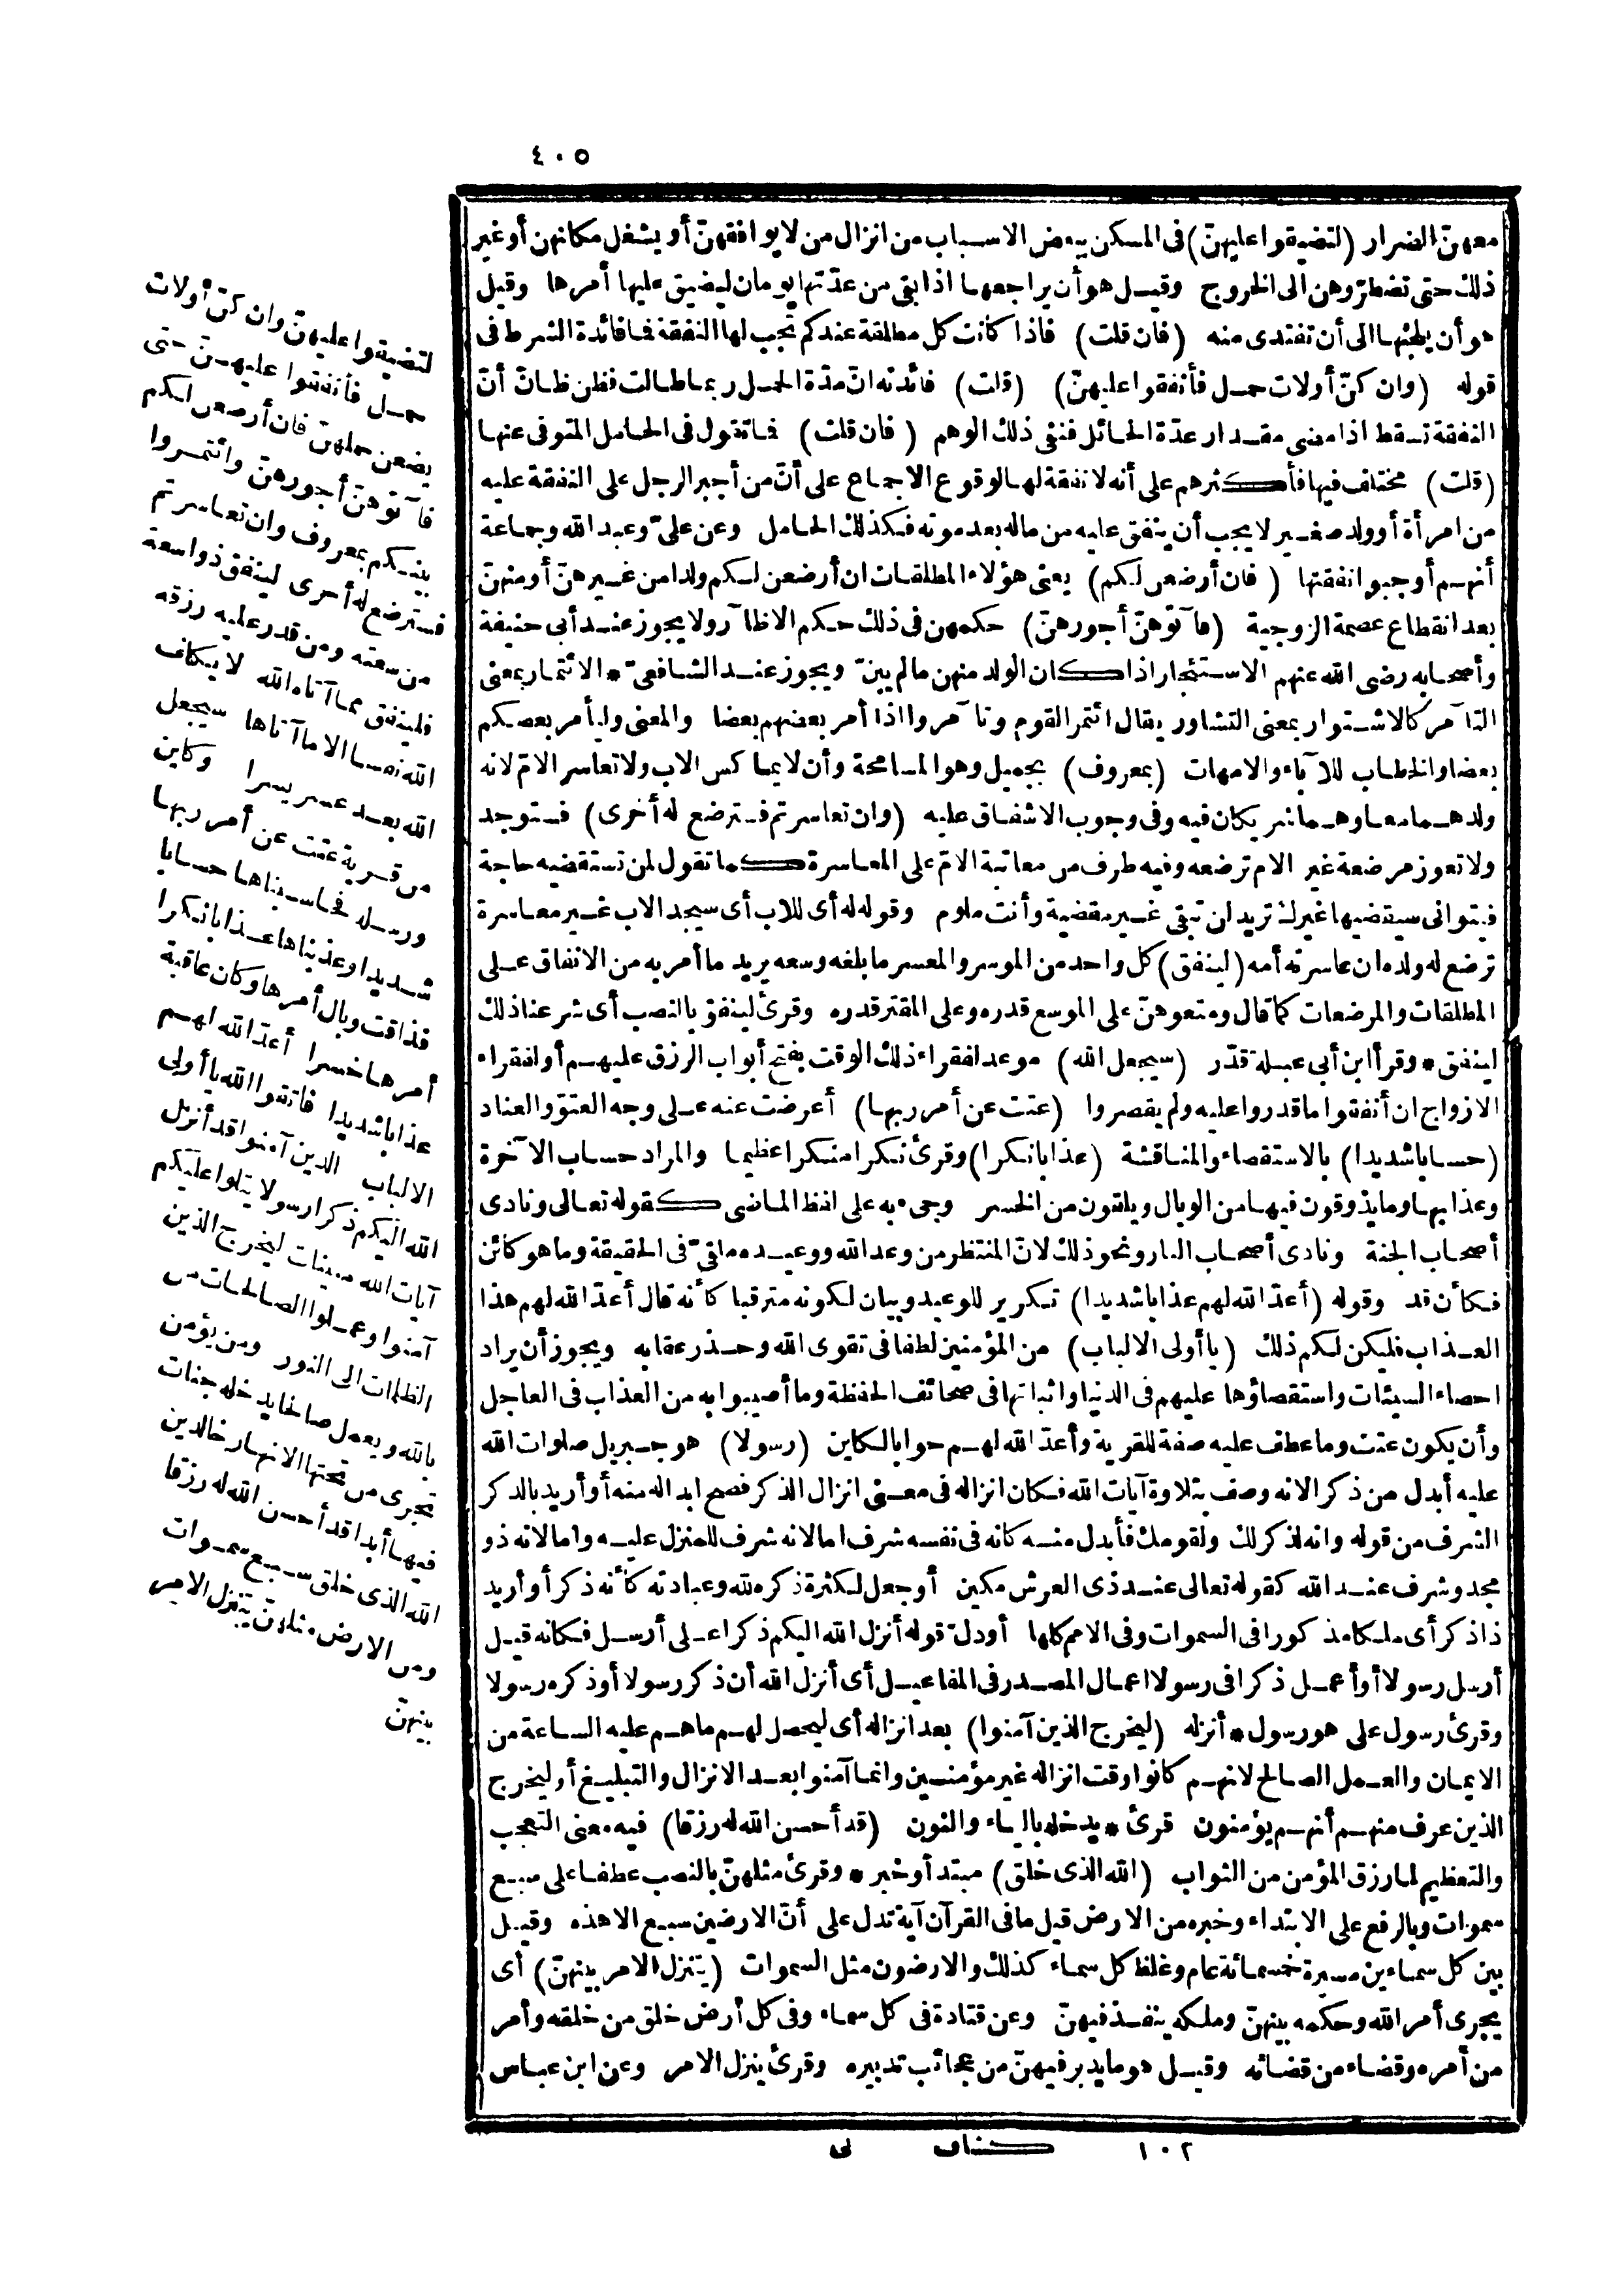 ٤٠٥
معهنّ الضرار (لتضيقوا عليهنّ) فى المسكن ببعض الاسباب من انزال من لا يوافقهنّ أو يشغل مكانهن أو غير
ذلك حتى تضطرّوهن الى الخروج وقيل هو أن يراجعها اذا بقى من عدّتها يومان ليضيق عليها أمرها وقيل
هو أن يلجئها الى أن تفتدى منه (فان قلت) فاذا كانت كل مطلقة عندكم تجب لها النفقة فما فائدة الشرط فى
قوله (وان كنّ أولات حمل فأنفقوا عليهنّ) (قلت) فائدته انّ مدّة الحمل ربما طالت فظن ظانّ أنّ
النفقة تسقط اذا مضى مقدار عدّة الحائل فنفى ذلك الوهم (فان قلت) فما تقول فى الحامل المتوفى عنها
(قلت) مختلف فيها فأكثرهم على أنه لا نفقة لها لوقوع الاجماع على أنّ من أجبر الرجل على النفقة عليه
من امرأة أو ولد صغير لا يجب أن ينفق عليه من ماله بعد موته فكذلك الحامل وعن علىّ وعبد الله وجماعة
أنهم أوجبوا نفقتها (فان أرضعن لكم) يعنى هؤلاء المطلقات ان أرضعن لكم ولدا من غيرهنّ أو منهنّ
بعد انقطاع عصمة الزوجية (فآتوهنّ أجورهنّ) حكمهن فى ذلك حكم الاظآر ولا يجوز عند أبى حنيفة
وأصحابه رضى الله عنهم الاستئجار اذا كان الولد منهن ما لم يبنّ ويجوز عند الشافعىّ * الائتمار بمعنى
التآمر كالاشتوار بمعنى التشاور يقال ائتمر القوم وتآمروا اذا أمر بعضهم بعضا والمعنى وليأمر بعضكم
بعضا والخطاب للآباء والامهات (بمعروف) بجميل وهو المسامحة وأن لا يماكس الاب ولا تعاسر الامّ لانه
ولدهما معا وهما شريكان فيه وفى وجوب الاشفاق عليه (وان تعاسرتم فسترضع له أخرى) فستوجد
ولا تعوز مرضعة غير الام ترضعه وفيه طرف من معاتبة الامّ على المعاسرة كما تقول لمن تستقضيه حاجة
فيتوانى سيقضيها غيرك تريد ان تبقى غير مقضية وأنت ملوم وقوله له أى للاب أى سيجد الاب غير معاسرة
ترضع له ولده ان عاسرته أمه (لينفق) كل واحد من الموسر والمعسر ما بلغه وسعه يريد ما أمر به من الانفاق على
المطلقات والمرضعات كما قال ومتعوهنّ على الموسع قدره وعلى المقتر قدره وقرئ لينفق بالنصب أى شرعنا ذلك
لينفق * وقرأ ابن أبى عبلة قدّر (سيجعل الله) موعد لفقراء ذلك الوقت بفتح أبواب الرزق عليهم أو لفقراء
الازواج ان أنفقوا ما قدروا عليه ولم يقصروا (عتت عن أمر ربها) أعرضت عنه على وجه العتوّ والعناد
(حسابا شديدا) بالاستقصاء والمناقشة (عذابا نكرا) وقرئ نكرا منكرا عظيما والمراد حساب الآخرة
وعذابها وما يذوقون فيها من الوبال ويلقون من الخسر وجىء به على لفظ الماضى كقوله تعالى ونادى
أصحاب الجنة ونادى أصحاب النار ونحو ذلك لانّ المنتظر من وعد الله ووعيده ملقىّ فى الحقيقة وما هو كائن
فكأن قد وقوله (أعدّ الله لهم عذابا شديدا) تكرير للوعيد وبيان لكونه مترقبا كأنه قال أعدّ الله لهم هذا
العذاب فليكن لكم ذلك (يا أولى الالباب) من المؤمنين لطفا فى تقوى الله وحذر عقابه ويجوز أن يراد
احصاء السيئات واستقصاؤها عليهم فى الدنيا واثباتها فى صحائف الحفظة وما أصيبوا به من العذاب فى العاجل
وأن يكون عتت وما عطف عليه صفة للقرية وأعدّ الله لهم جوابا لكاين (رسولا) هو جبريل صلوات الله
عليه أبدل من ذكرا لانه وصف بتلاوة آيات الله فكان انزاله فى معنى انزال الذكر فصح ابداله منه أو أريد بالذكر
الشرف من قوله وانه لذكر لك ولقومك فأبدل منه كانه فى نفسه شرف اما لانه شرف للمنزل عليه واما لانه ذو
مجد وشرف عند الله كقوله تعالى عند ذى العرش مكين أو جعل لكثرة ذكره لله وعبادته كأنه ذكر أو أريد
ذا ذكر أى ملكا مذكورا فى السموات وفى الامم كلها أو دلّ قوله أنزل الله اليكم ذكرا على أرسل فكانه قيل
أرسل رسولا أو أعمل ذكرا فى رسولا اعمال المصدر فى المفاعيل أى أنزل الله أن ذكر رسولا أو ذكره رسولا
وقرئ رسول على هو رسول * أنزله (ليخرج الذين آمنوا) بعد انزاله أى ليحصل لهم ما هم عليه الساعة من
الايمان والعمل الصالح لانهم كانوا وقت انزاله غير مؤمنين وانما آمنوا بعد الانزال والتبليغ أو ليخرج
الذين عرف منهم أنهم يؤمنون قرئ * يدخله بالياء والنون (قد أحسن الله له رزقا) فيه معنى التعجب
والتعظيم لما رزق المؤمن من الثواب (الله الذى خلق) مبتدأ وخبر * وقرئ مثلهنّ بالنصب عطفا على سبع
سموات وبالرفع على الابتداء وخبره من الارض قيل ما فى القرآن آية تدل على أنّ الارضين سبع الا هذه وقيل
بين كل سماءين مسيرة خمسمائة عام وغلظ كل سماء كذلك والارضون مثل السموات (يتنزل الامر بينهنّ) أى
يجرى أمر الله وحكمه بينهنّ وملكه ينفذ فيهنّ وعن قتادة فى كل سماء وفى كل أرض خلق من خلقه وأمر
من أمره وقضاء من قضائه وقيل هو ما يدبر فيهنّ من عجائب تدبيره وقرئ ينزل الامر وعن ابن عباس
لتضيقوا عليهنّ وان كنّ أولات
حمل فأنفقوا عليهنّ حتى
يضعن حملهنّ فان أرضعن لكم
فآتوهنّ أجورهنّ وائتمروا
بينكم بمعروف وان تعاسرتم
فسترضع له أخرى لينفق ذو سعة
من سعته ومن قدر عليه رزقه
فلينفق مما آتاه الله لا يكلف
الله نفسا الا ما آتاها سيجعل
الله بعد عسر يسرا وكاين
من قرية عتت عن أمر ربها
ورسله فحاسبناها حسابا
شديدا وعذبناها عذابا نكرا
فذاقت وبال أمرها وكان عاقبة
أمرها خسرا أعدّ الله لهم
عذابا شديدا فاتقوا الله يا أولى
الالباب الذين آمنوا قد أنزل
الله اليكم ذكرا رسولا يتلوا عليكم
آيات الله مبينات ليخرج الذين
آمنوا وعملوا الصالحات من
الظلمات الى النور ومن يؤمن
بالله ويعمل صالحا يدخله جنات
تجرى من تحتها الانهار خالدين
فيها أبدا قد أحسن الله له رزقا
الله الذى خلق سبع سموات
ومن الارض مثلهنّ يتنزل الامر
بينهنّ
١٠٢ كشاف لى